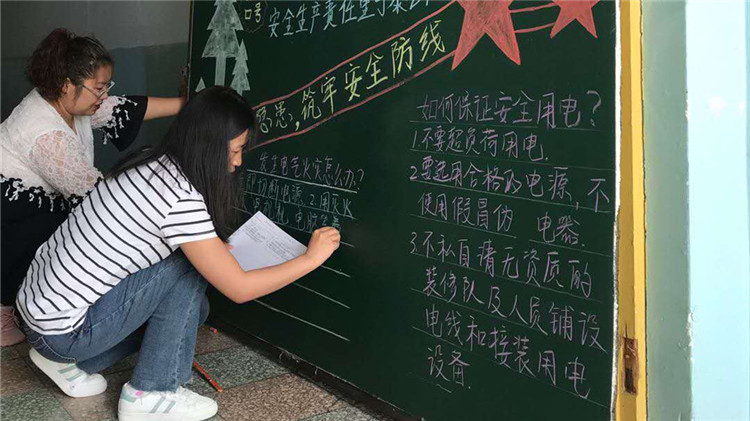 口号 安全生产责任重于泰
患,筑牢安全防线
发生电气火灾怎么办?
切断电源 2.用灭火
如何保证安全用电?
1.不要超负荷用电.
2.要选用合格的电源,不
使用假冒伪 电器.
3.不私自请无资质的
装修队及人员铺设
电线和接装用电
设备.